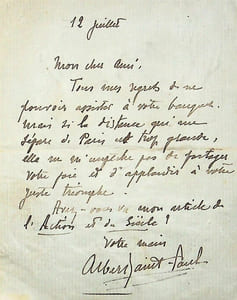 12 juillet
Mon cher ami,
Tous mes regrets de ne
pouvoir assister à votre banquet.
Mais si la distance qui me
sépare de Paris est trop grande,
elle ne m'empêche pas de partager
votre joie et d'applaudir à votre
juste triomphe.
Avez-vous vu mon article de
l'Action et du Siècle ?
Votre
Albert Saint-Paul